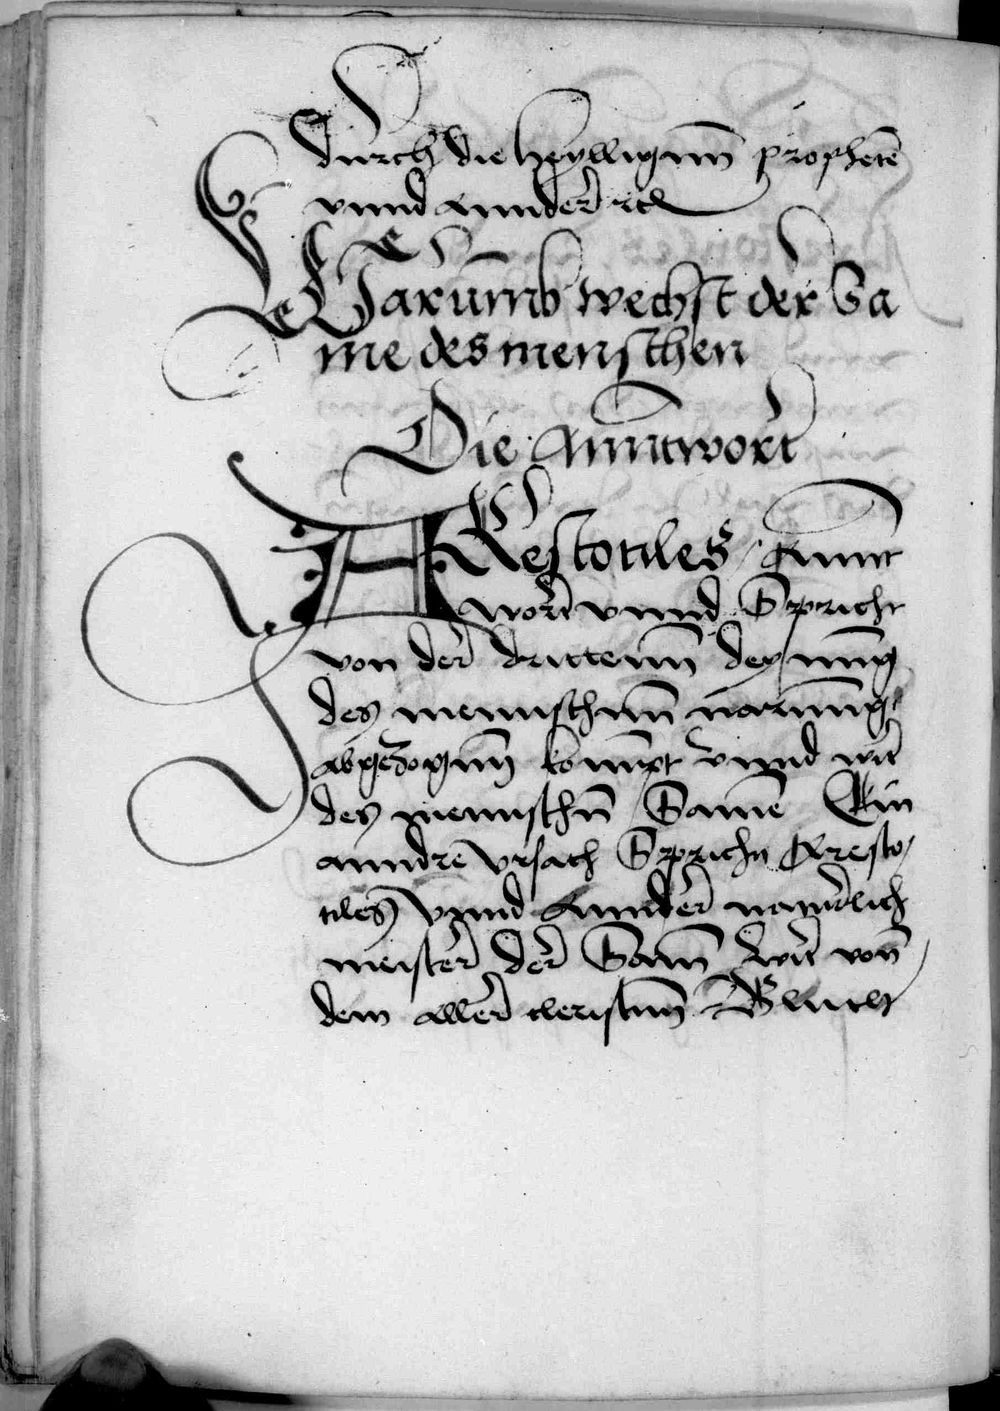 durch die heylligenn prophetē
vnnd annder ꝛc
WArumb wechst der Sa
me des menschen
Die Anntwort
ARestotiles Annt
wort vnnd Spricht
von der drittenn dey nung
des mennschenn narunng
abgezogenn kompt vnnd wirt
des mennschn̄ Samē Ein
anndre vrsach Spricht Aresto
tiles vnnd annder naturlich
meister der Sam wirt von
dem aller Bluth